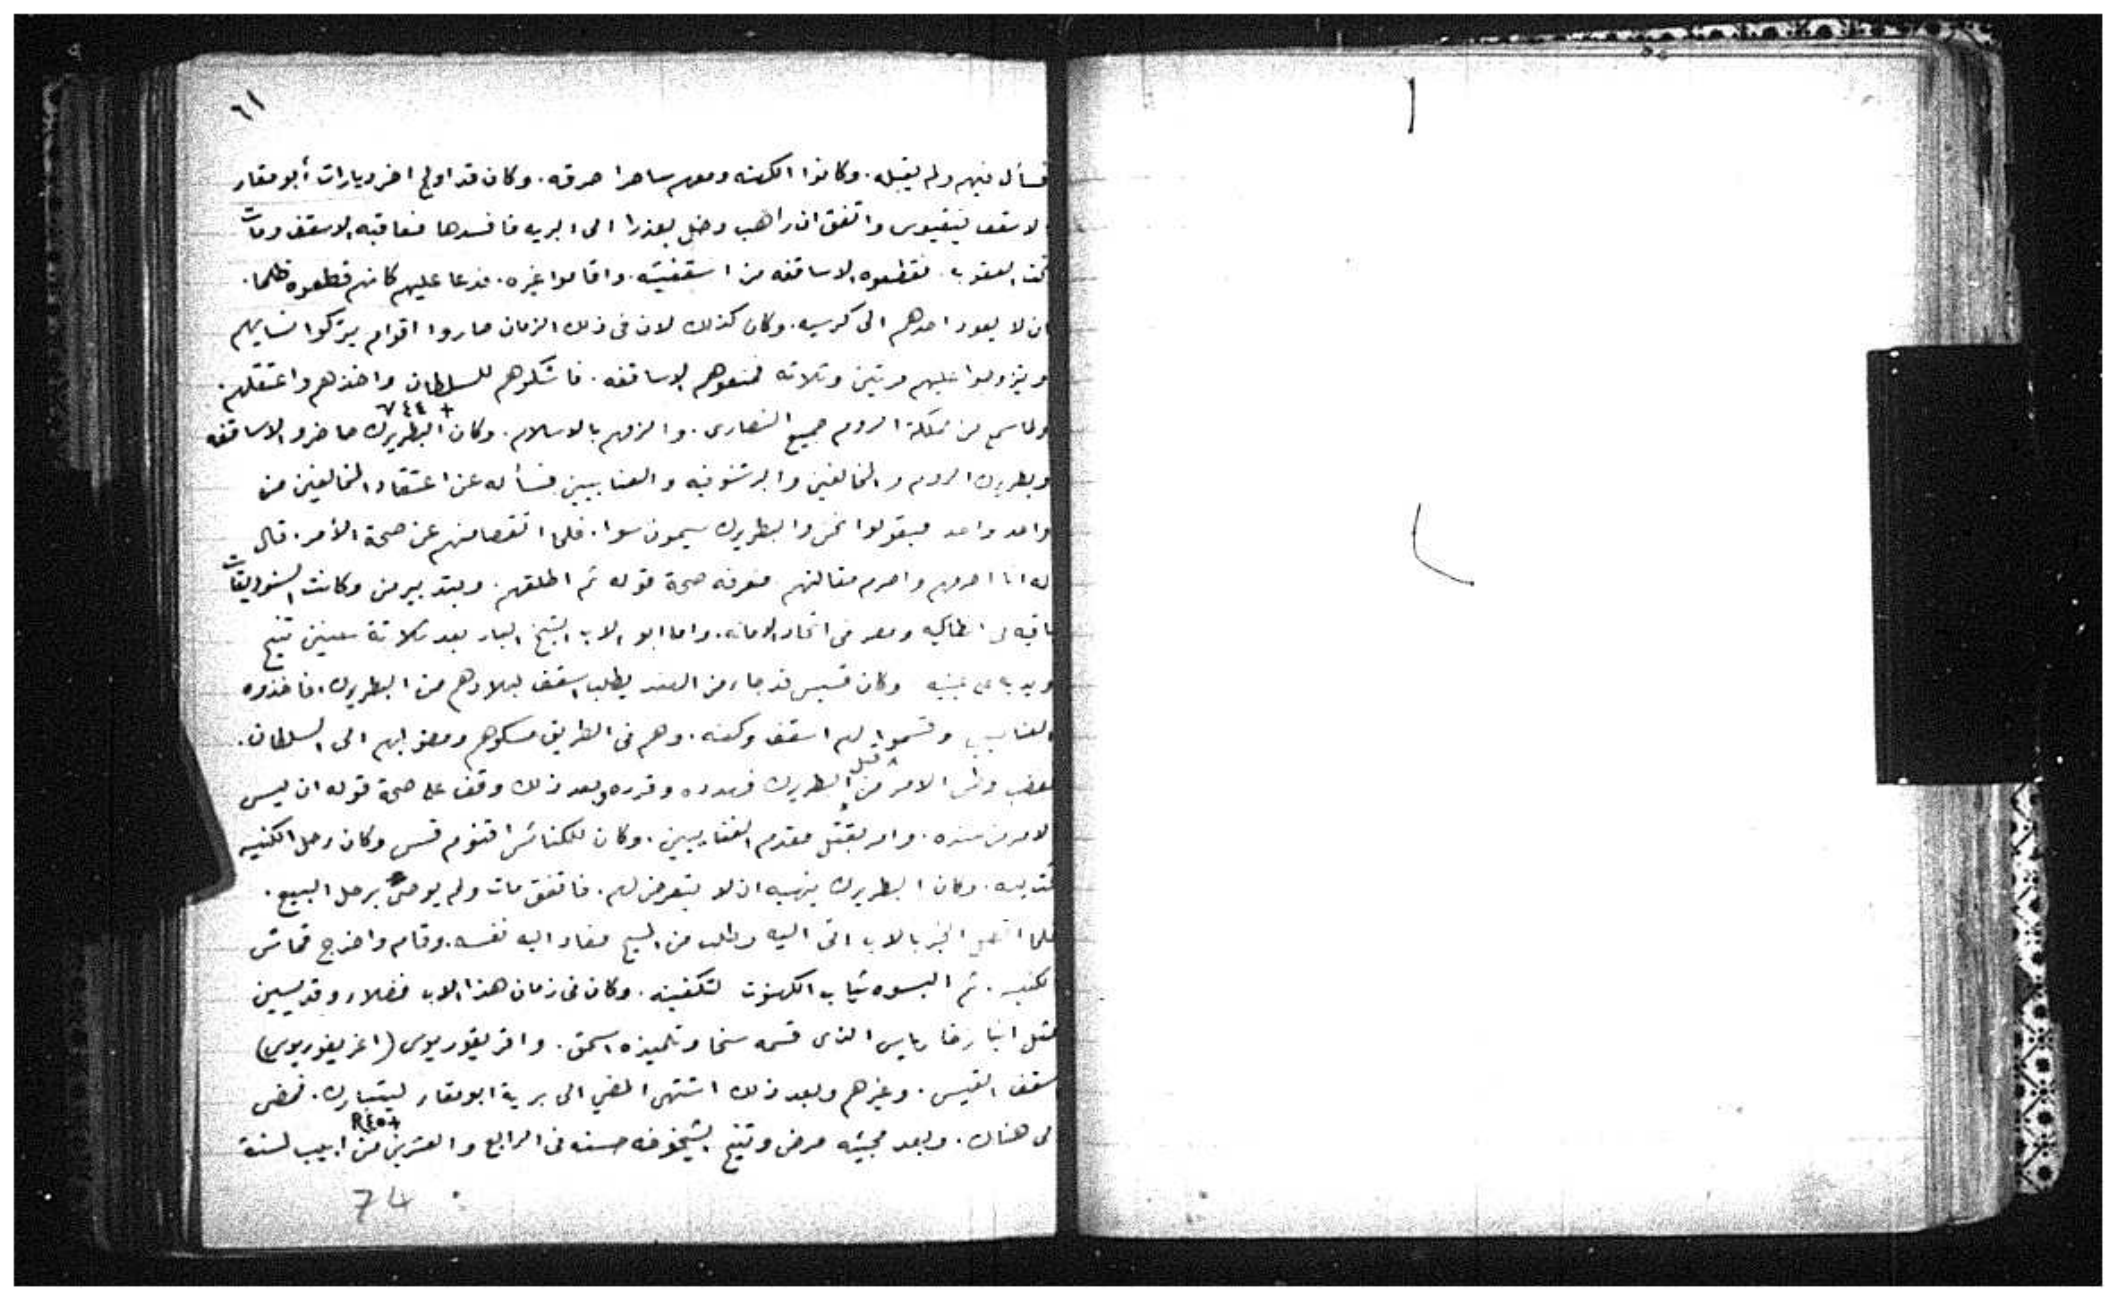 ٦١
فسأل فيهم ولم يقبله. وكانوا الكهنه ومعهم ساحرا حرقه. وكان قد اولج اخر ديارات أبو مقار
لاسقف نيقيوس واتفق ان راهب دخل بعذرا الى البريه فافسدها فعاقبه الاسقف ومات
تحت العقوبه. فقطعوه الاساقفه من اسقفيته. واقاموا غيره. فدعا عليهم كانهم قطعوه ظلما.
ان لا يعود احدهم الى كرسيه. وكان كذلك لان فى ذلك الزمان صاروا اقوام يتركوا نسايهم
ويتزوجوا عليهم مرتين وتلاته فمنعوهم الاساقفه. فاشكوهم للسلطان واخذهم واعتقلهم.
+ ٧٤٤
ولما سمع من مملكة الروم جميع النصارى. والزمهم بالاسلام. وكان البطريرك حاضر والاساقفه
وبطريرك الروم والمخالفين والبرشنوفيه والغنابيين فسأله عن اعتقاد المخالفين من
واحد واحد فيقولوا نحن والبطريرك سيمون سوا. فلما اتقصا منهم عن صحة الأمر. قال
له انا احرمهم واحرم مقالتهم فعرفه صحة قوله ثم اطلقهم. وبتدبير من وكانت السنوديقات
باقيه من انطاكيه ومصر فى اتحاد الامانه. واما ابو الاب الشيخ البار بعد تلاتة سنين تنيح
ويديه على عينيه وكان قسيس قد جاء من الهند يطلب اسقف لبلادهم من البطريرك. فاخذوه
الغنابيين وقسموا لهم اسقف وكهنه. وهم فى الطريق مسكوهم ومضوا بهم الى السلطان.
فغضب وظن الامر من قبل البطريرك فهدده وقرره وبعد ذلك وقف على صحة قوله ان ليس
الامر من عنده. وامر بقتل مقدم الغنابيين. وكان للكنائس اقنوم قس وكان رحل الكنيسه
تحت يده. وكان البطريرك ينهيه ان لا يتعرض لهم. فاتفق مات ولم يوصى برحل البيع.
فلما اتصل الخبر بالاب اتى اليه وطلب من المسيح فعاد اليه نفسه. وقام واخرج قماش
الكنيسه. ثم البسوه ثياب الكهنوت لتكفينه. وكان فى زمان هذا الاب فضلاء وقديسين
مثل انبا زخارياس الذى قسمه سخا وتلميذه اسحق. واقريقوريوس (اغريغوريوس)
اسقف القيس. وغيرهم وبعد ذلك اشتهى المضي الى برية ابو مقار ليتبارك. فمضى
الى هناك. وبعد مجيئه مرض وتنيح بشيخوخه حسنه فى الرابع والعشرين من ابيب لسنة
74